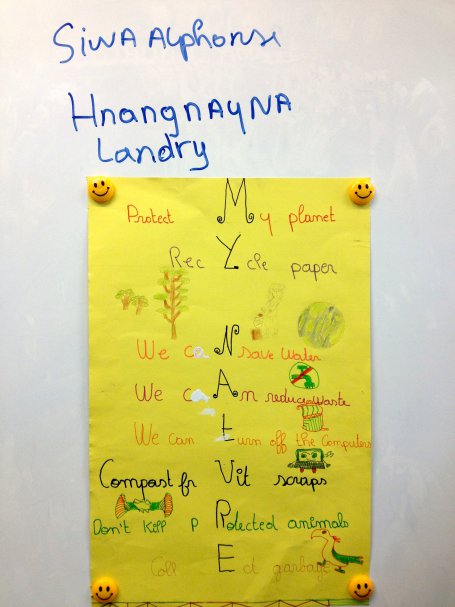 SiWA Alphonse
HnangnAyNA
Landry
Protect My planet
RecYcle paper
We caN save Water
We cAn reduce waste
We can turn off the Computers
Compost frUit scraps
Don't Kill PRotected animals
CollEct garbage